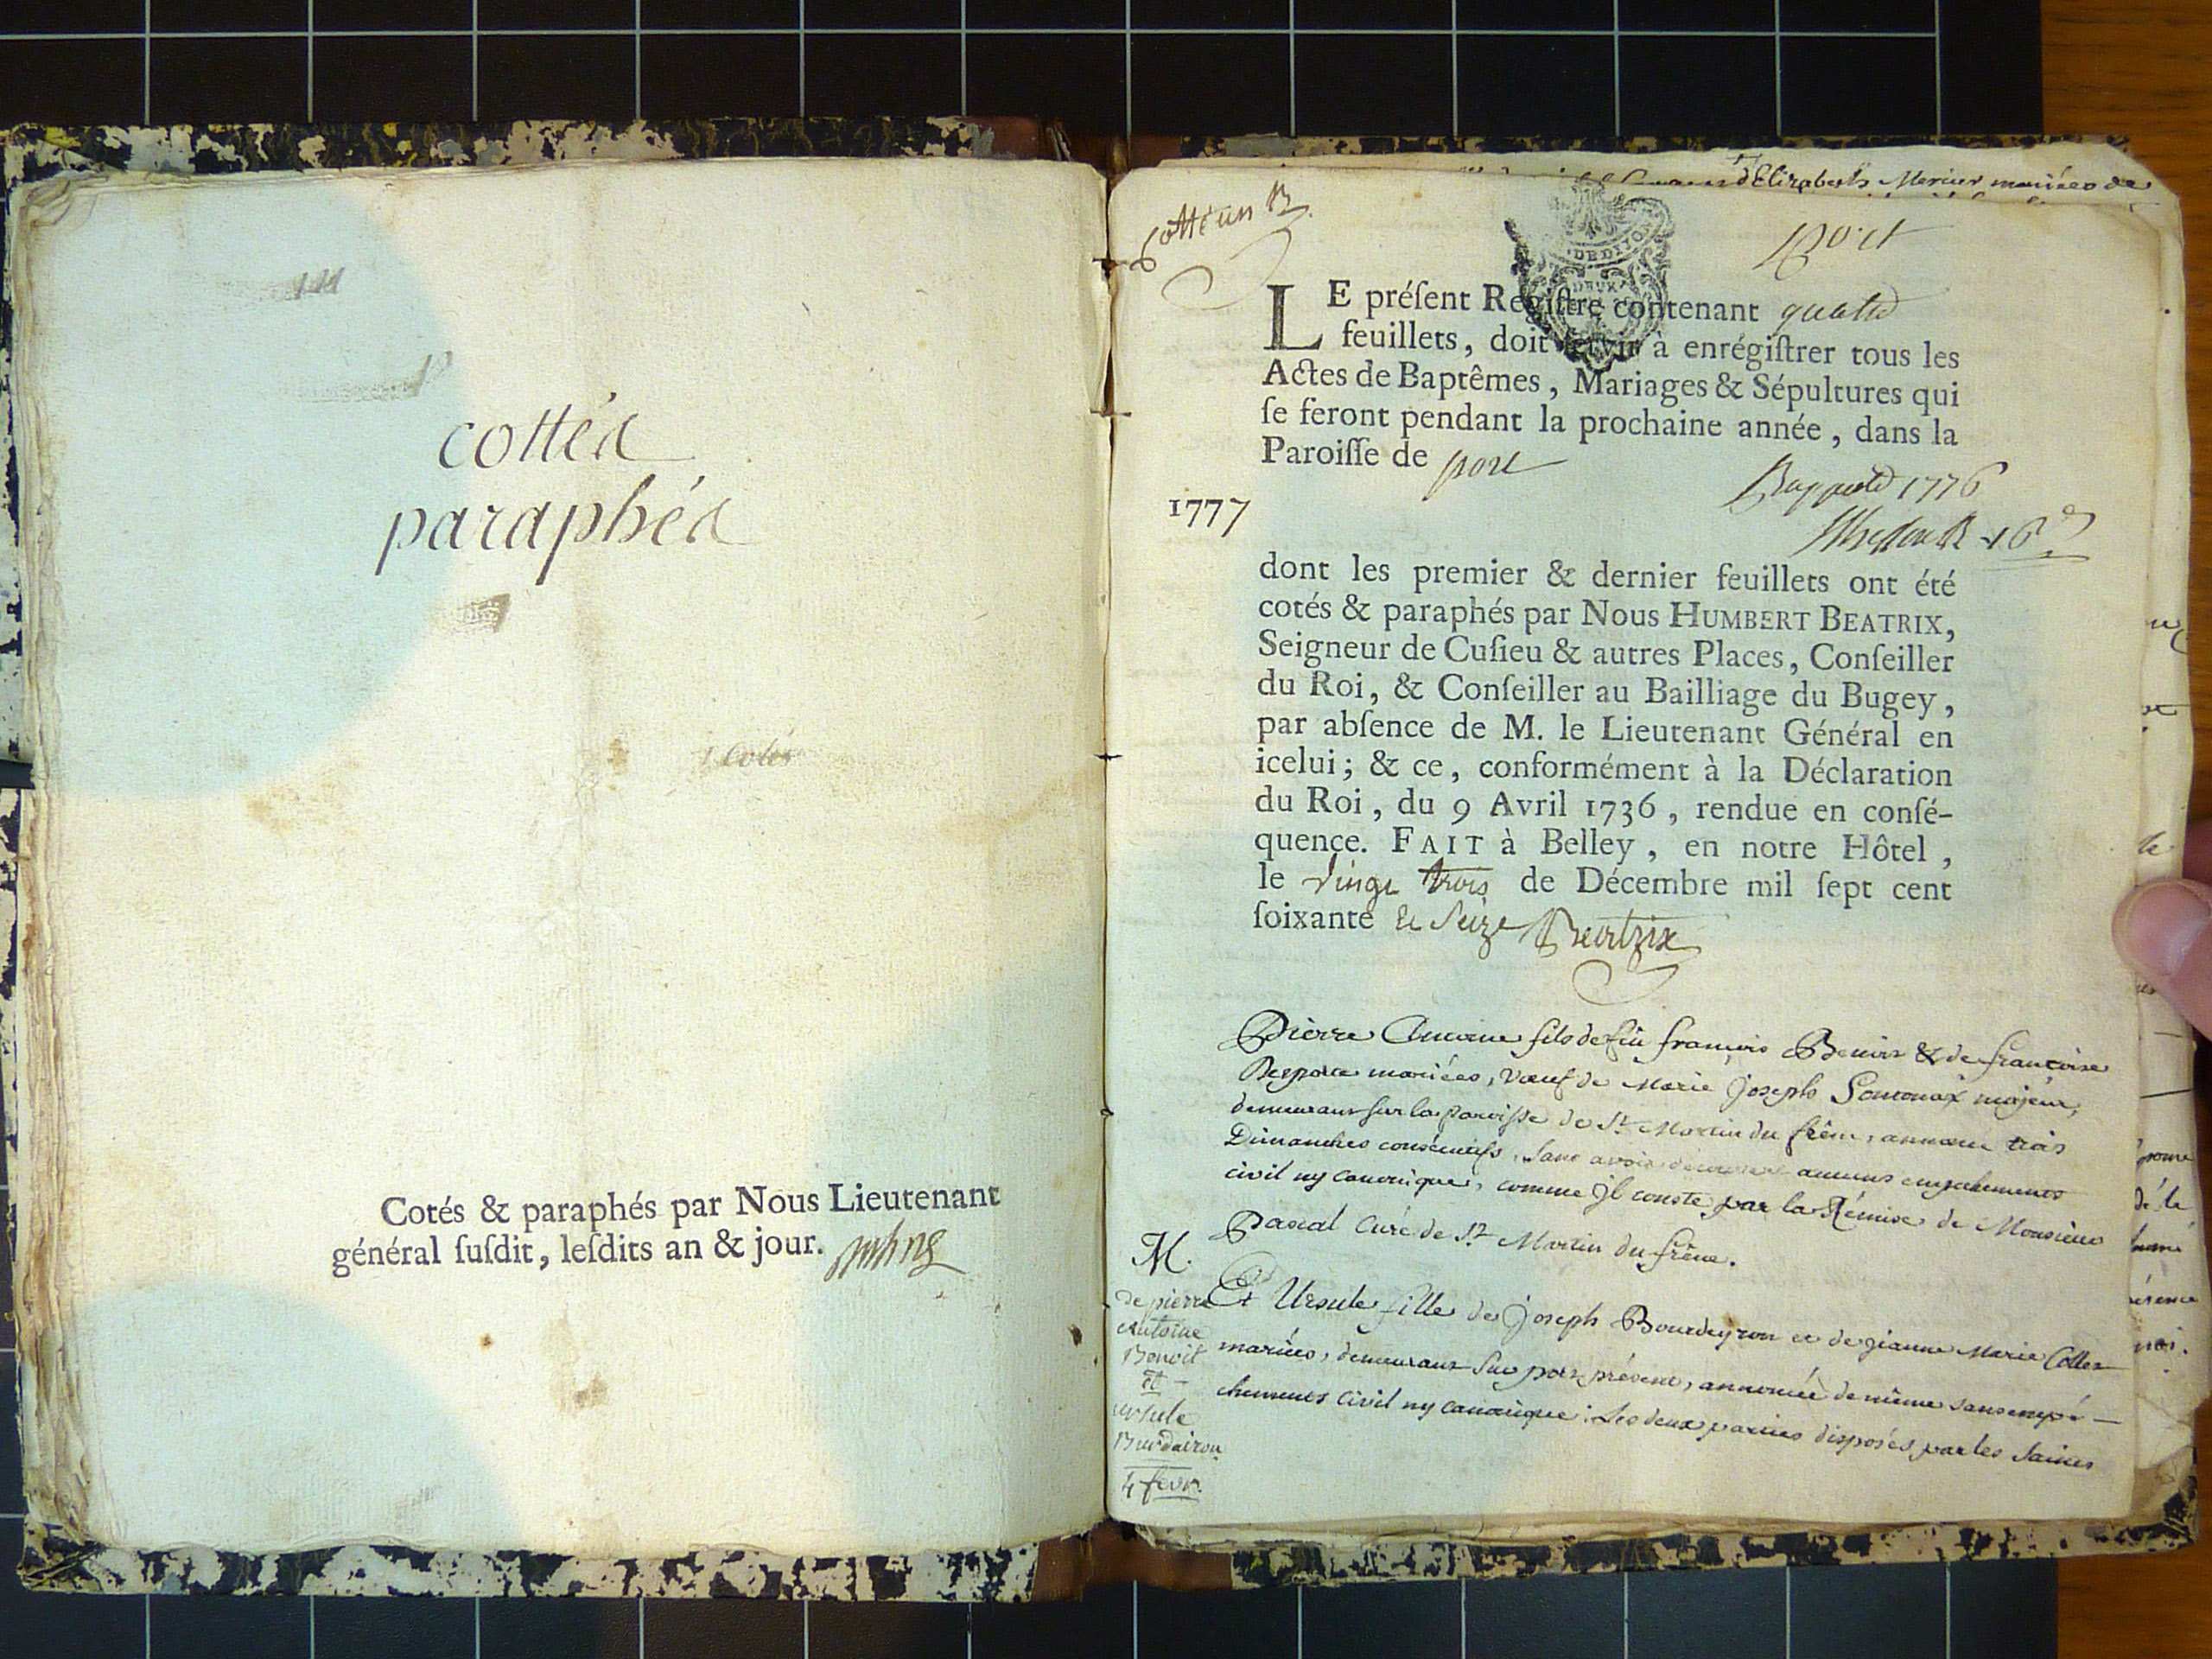 cottéa
paraphéa
Cotés
Cotés & paraphés par Nous Lieutenant
général ſuſdit, leſdits an & jour.
d'Elizabeth Mercier mariées de
Cotté un B
port
LE préſent Regiſtre contenant quatre
feuillets, doit ſervir à enrégiſtrer tous les
Actes de Baptêmes, Mariages & Sépultures qui
ſe feront pendant la prochaine année, dans la
Paroiſſe de port
1777
1776
dont les premier & dernier feuillets ont été
cotés & paraphés par Nous HUMBERT BEATRIX,
Seigneur de Cuſieu & autres Places, Conſeiller
du Roi, & Conſeiller au Bailliage du Bugey,
par abſence de M. le Lieutenant Général en
icelui; & ce, conformément à la Déclaration
du Roi, du 9 Avril 1736, rendue en conſé-
quence. FAIT à Belley, en notre Hôtel,
le vingt trois de Décembre mil ſept cent
ſoixante et Seize Beatrix
Pierre Antoine fils de feu françois Benoit & de françoise
mariées, Vœuf de Marie Joseph majeur,
demeurant sur la paroisse de St Martin du frêne, annoncé trois
Dimanches consécutifs, sans avoir découvert aucuns empechements
civil ny canonique, comme il conste par la Rémise de Monsieur
Pascal Curé de St Martin du frêne.
M.
de pierre
Antoine
Benoit
et
ursule
Burdairon
4 fevr.
Et Ursule fille de Joseph Bourdeyron et de jeanne Marie Collet
mariées, demeurant sur port présent, annoncée de même sans empé-
chements civil ny canonique: Les deux parties disposées par les Saints